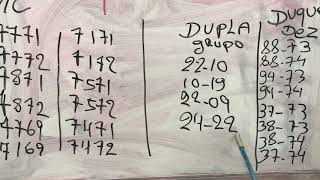 7771
7772
7871
7872
4769
7169
7171
7172
7571
7572
7471
7472
DUPLA
grupo
22-10
10-19
22-09
24-22
DUQUE
DEZ
88-73
88-74
94-73
94-74
37-73
38-73
38-74
37-74